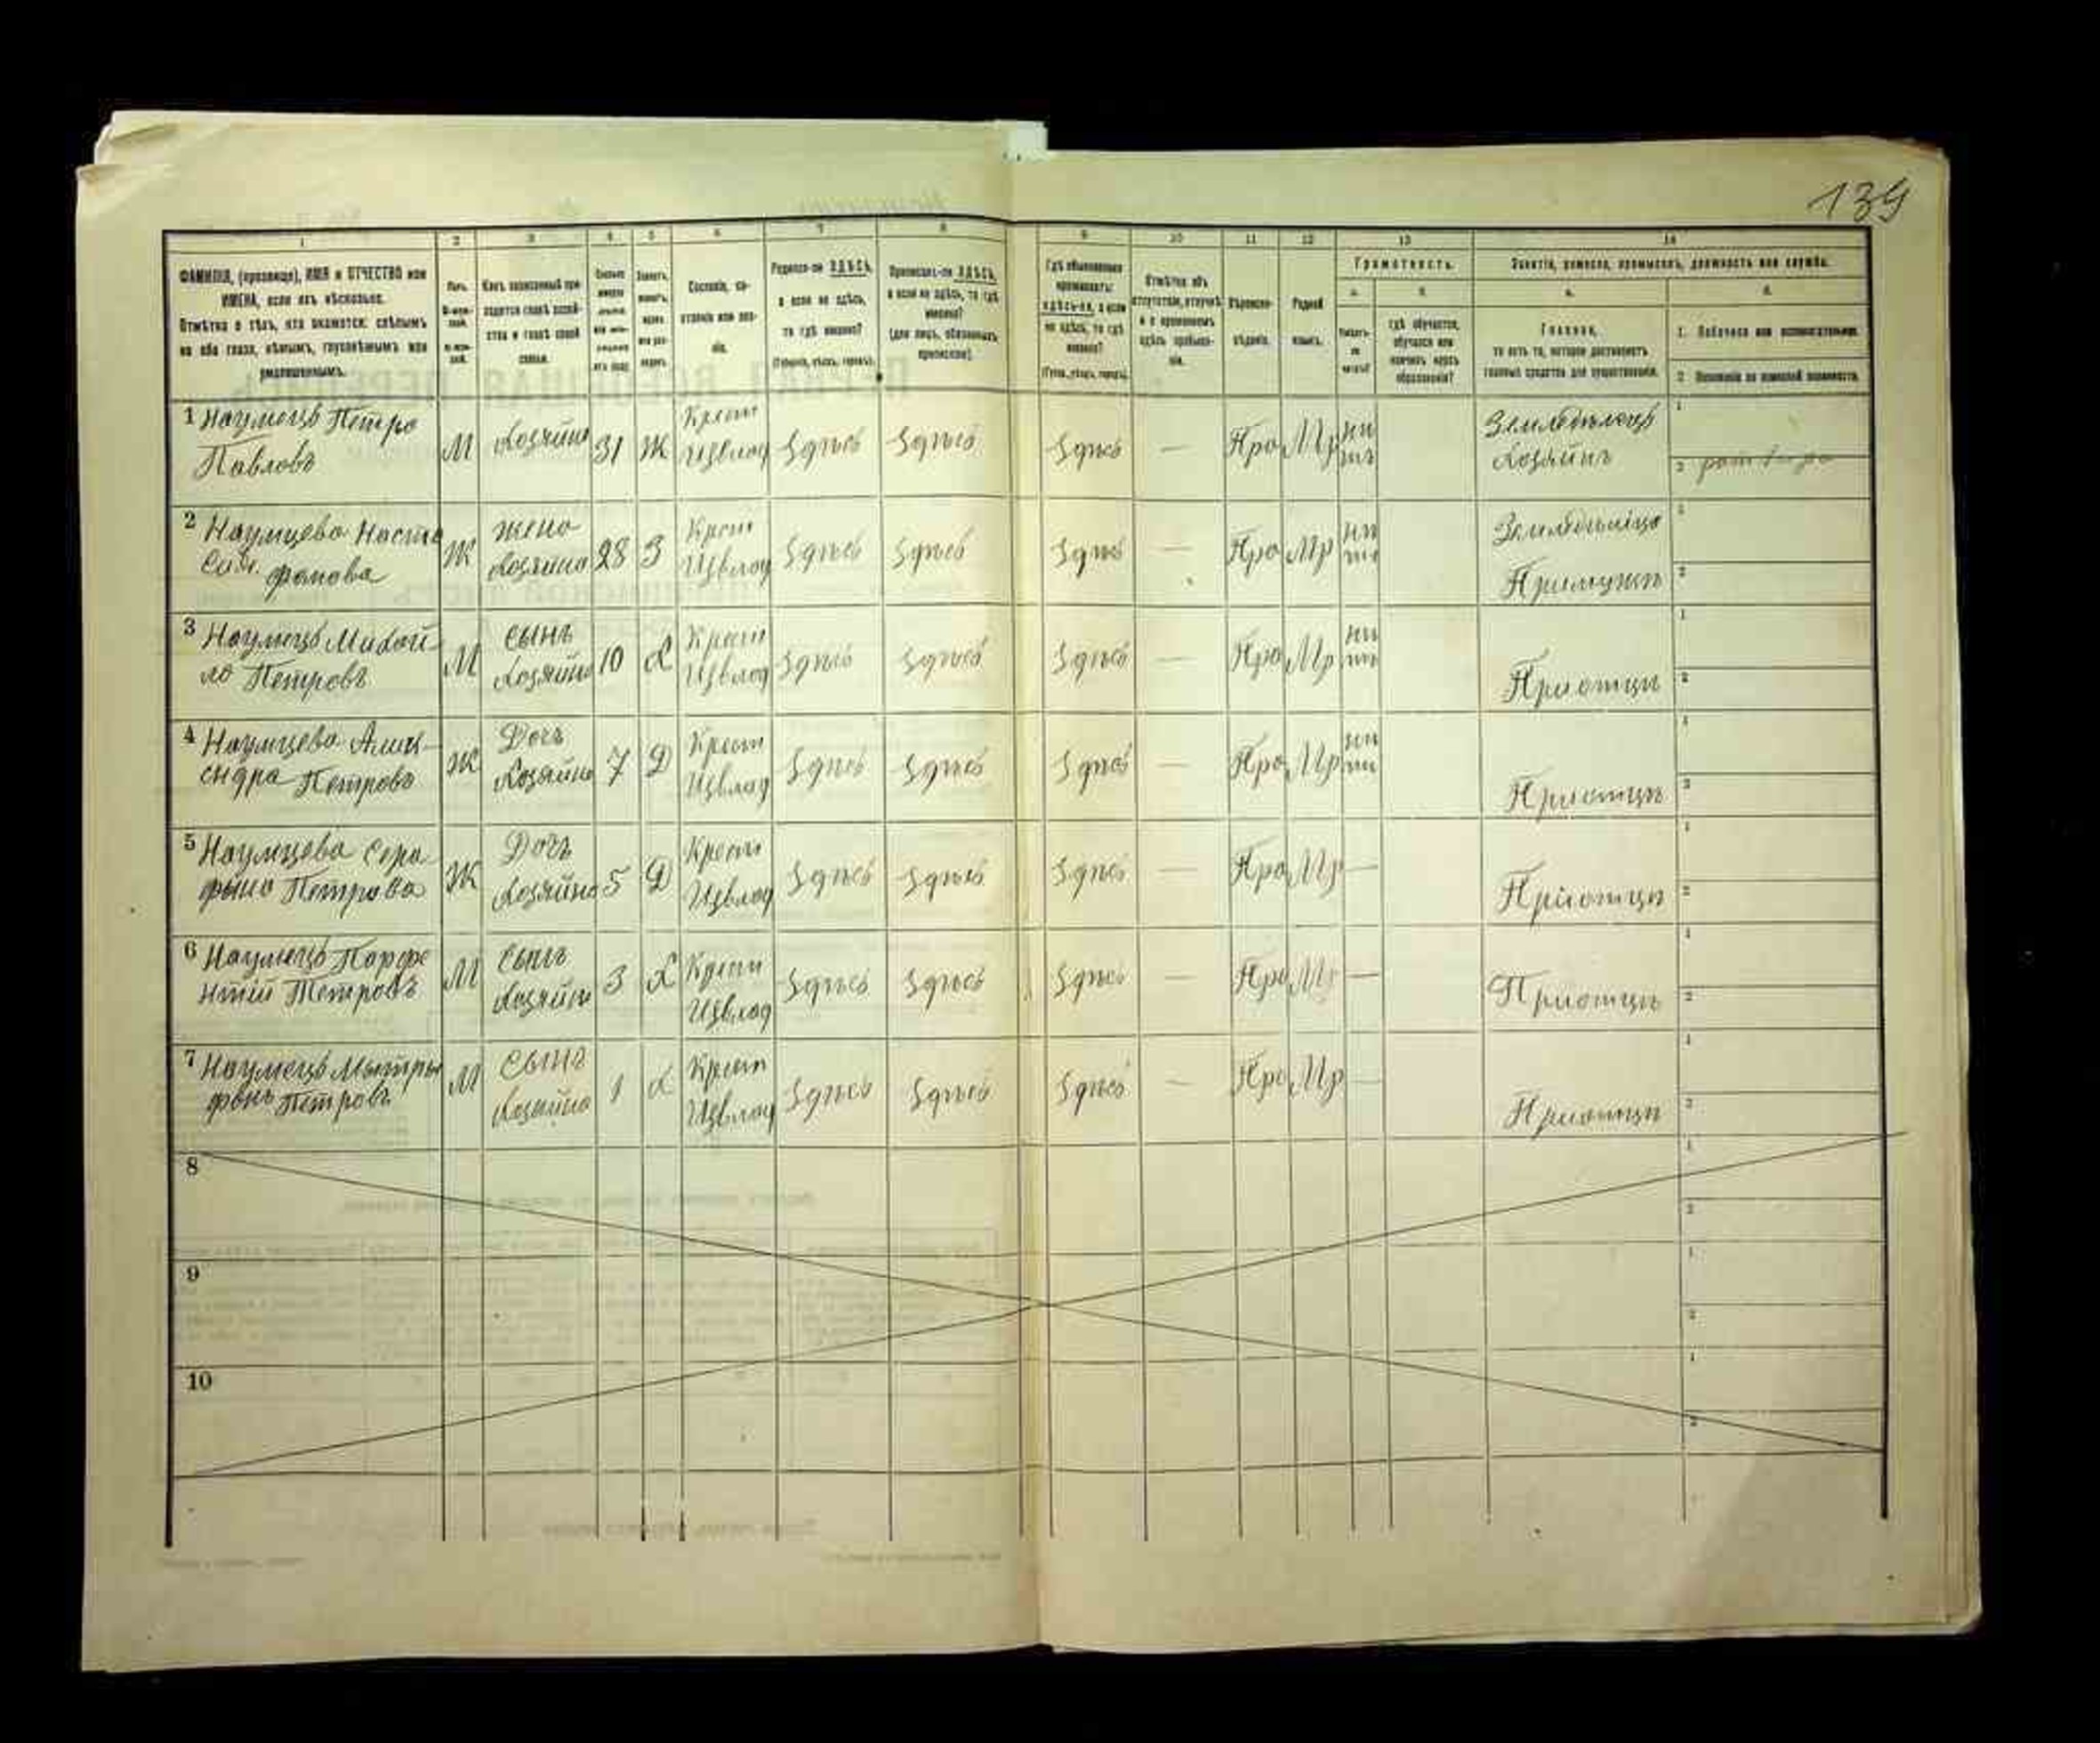 139
1 2 3 4 5 6 7 8 9 10 11 12 13 14
ФАМИЛІЯ, (прозвище), ИМЯ и ОТЧЕСТВО или
ИМЕНА, если ихъ нѣсколько.
Отмѣтка о тѣхъ, кто окажется: слѣпымъ
на оба глаза, нѣмымъ, глухонѣмымъ или
умалишеннымъ.
Полъ.
Какъ записанный при-
ходится главѣ хозяй-
ства и главѣ своей
семьи.
Сословіе, со-
стояніе или зва-
ніе.
Родился-ли ЗДѢСЬ,
а если не здѣсь,
то гдѣ именно?
(Губернія, уѣздъ, городъ).
Приписанъ-ли ЗДѢСЬ,
а если не здѣсь, то гдѣ
именно?
(для лицъ, обязанныхъ
припискою).
Гдѣ обыкновенно
проживаетъ:
здѣсь-ли, а если
не здѣсь, то гдѣ
именно?
(Губ., уѣздъ, городъ).
Отмѣтка объ
отсутствіи, отлучкѣ
и о временномъ
здѣсь пребыва-
ніи.
Вѣроиспо-
вѣданіе.
Родной
языкъ.
Грамотность.
а. б.
Умѣетъ-
ли
читать?
гдѣ обучается,
обучался или
кончилъ курсъ
образованія?
Занятіе, ремесло, промыселъ, должность или служба.
а. б.
Главное,
то есть то, которое доставляетъ
главныя средства для существованія.
1. Побочное или вспомогательное.
2. Положеніе по воинской повинности.
1 Наумецъ Петро
Павловъ
М Хозяинъ 31 Ж Крест Извлад Здѣсь Здѣсь Здѣсь — Пра Мр нитъ Земледѣлецъ Хозяинъ
2 Наумцева Наста
фанова
Ж жена Хозяина 28 З Крест Извлад Здѣсь Здѣсь Здѣсь — Пра Мр нитъ При мужѣ
3 Наумецъ Михай
ло Петровъ
М сынъ Хозяина 10 Х Крест Извлад Здѣсь Здѣсь Здѣсь — Пра Мр нитъ При отцѣ
4 Наумцева Алик-
сндра Петровъ
Ж Дочъ Хозяина 7 Д Крест Извлад Здѣсь Здѣсь Здѣсь — Пра Мр При отцѣ
5 Наумцева Сера
фына Петрова
Ж Дочъ Хозяина 5 Д Крест Извлад Здѣсь Здѣсь Здѣсь — Пра Мр — При отцѣ
6 Наумецъ Парфе
нтій Петровъ
М Сынъ Хозяина 3 Х Крест Извлад Здѣсь Здѣсь Здѣсь — Пра Мр — При отцѣ
7 Наумецъ Мытры
фонъ Петровъ
М Сынъ Хозяина 1 Х Крест Извлад Здѣсь Здѣсь Здѣсь — Пра Мр — При отцѣ
8
9
10